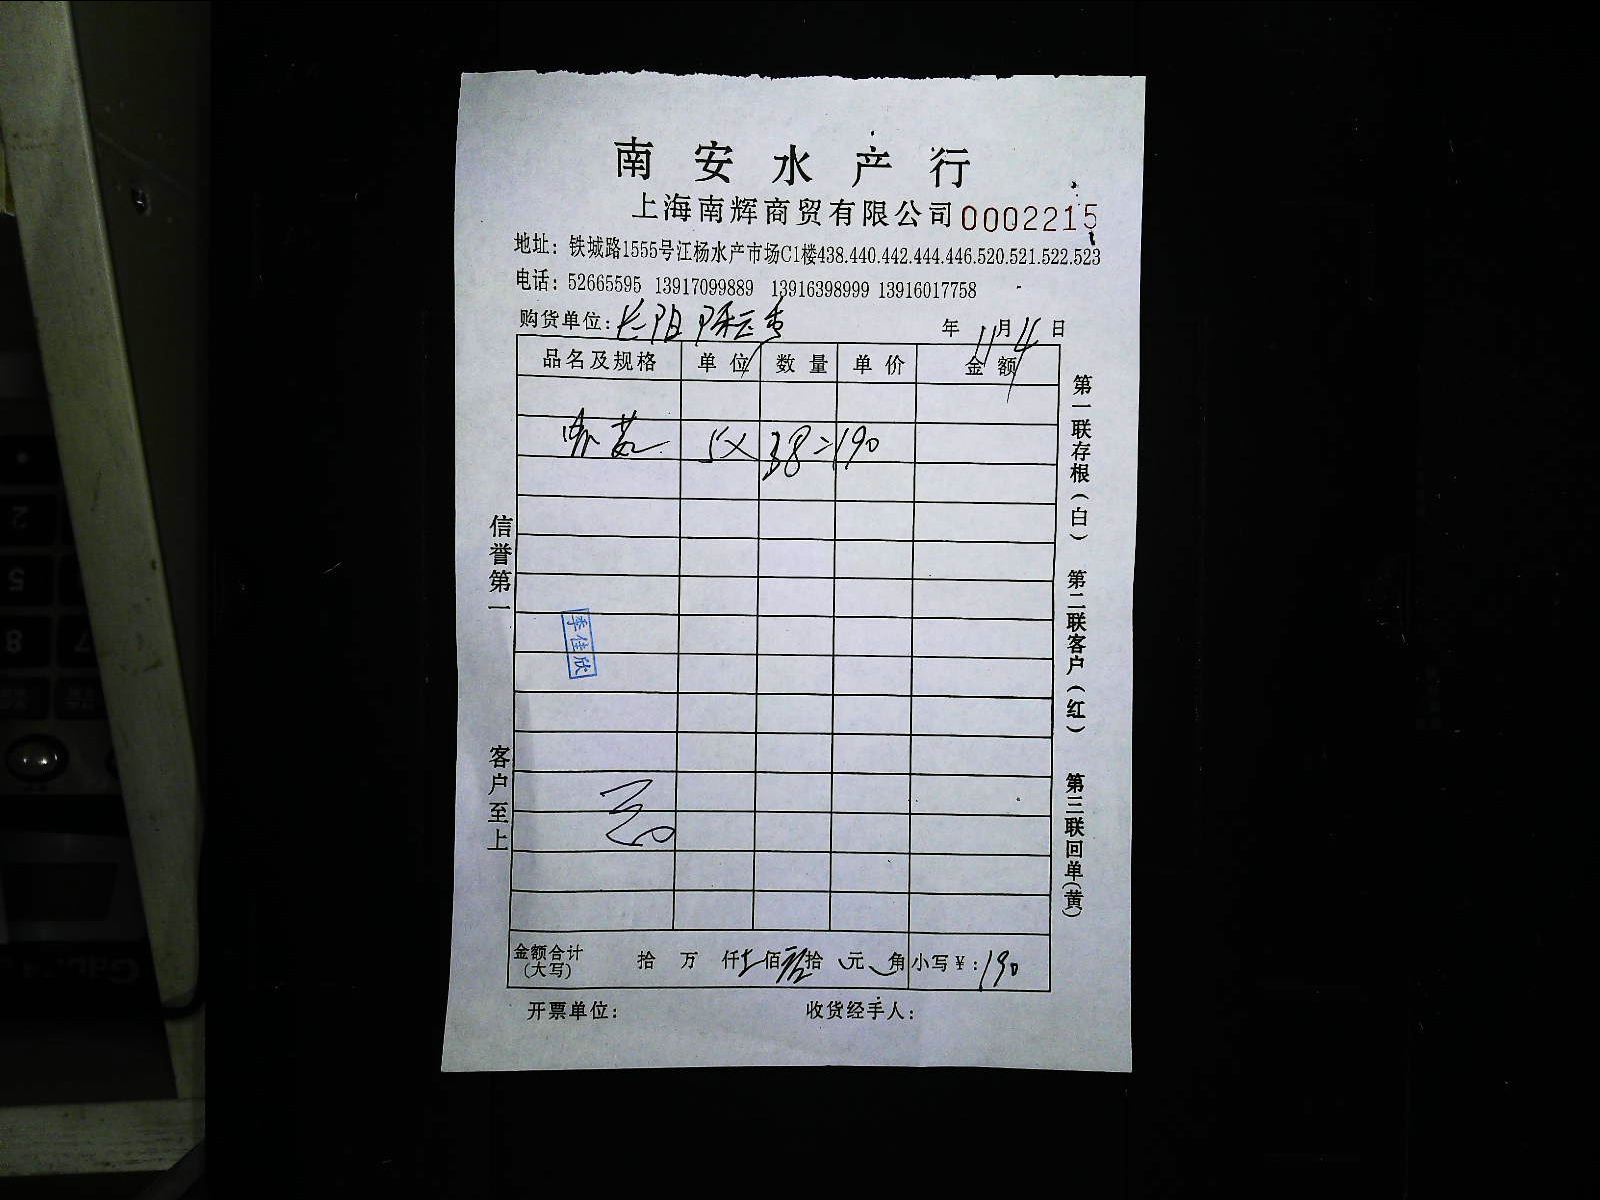 南安水产行
上海南辉商贸有限公司 0002215
地址：铁城路1555号江杨水产市场C1楼438.440.442.444.446.520.521.522.523
电话：52665595 13917099889 13916398999 13916017758
购货单位：长阳 陈云秀 年 11月4日
品名及规格 单位 数量 单价 金额
5×38=190
季佳欣
金额合计（大写） 拾 万 仟 佰 拾 元 角 小写￥：190
开票单位： 收货经手人：
信誉第一 客户至上
第一联存根（白） 第二联客户（红） 第三联回单（黄）